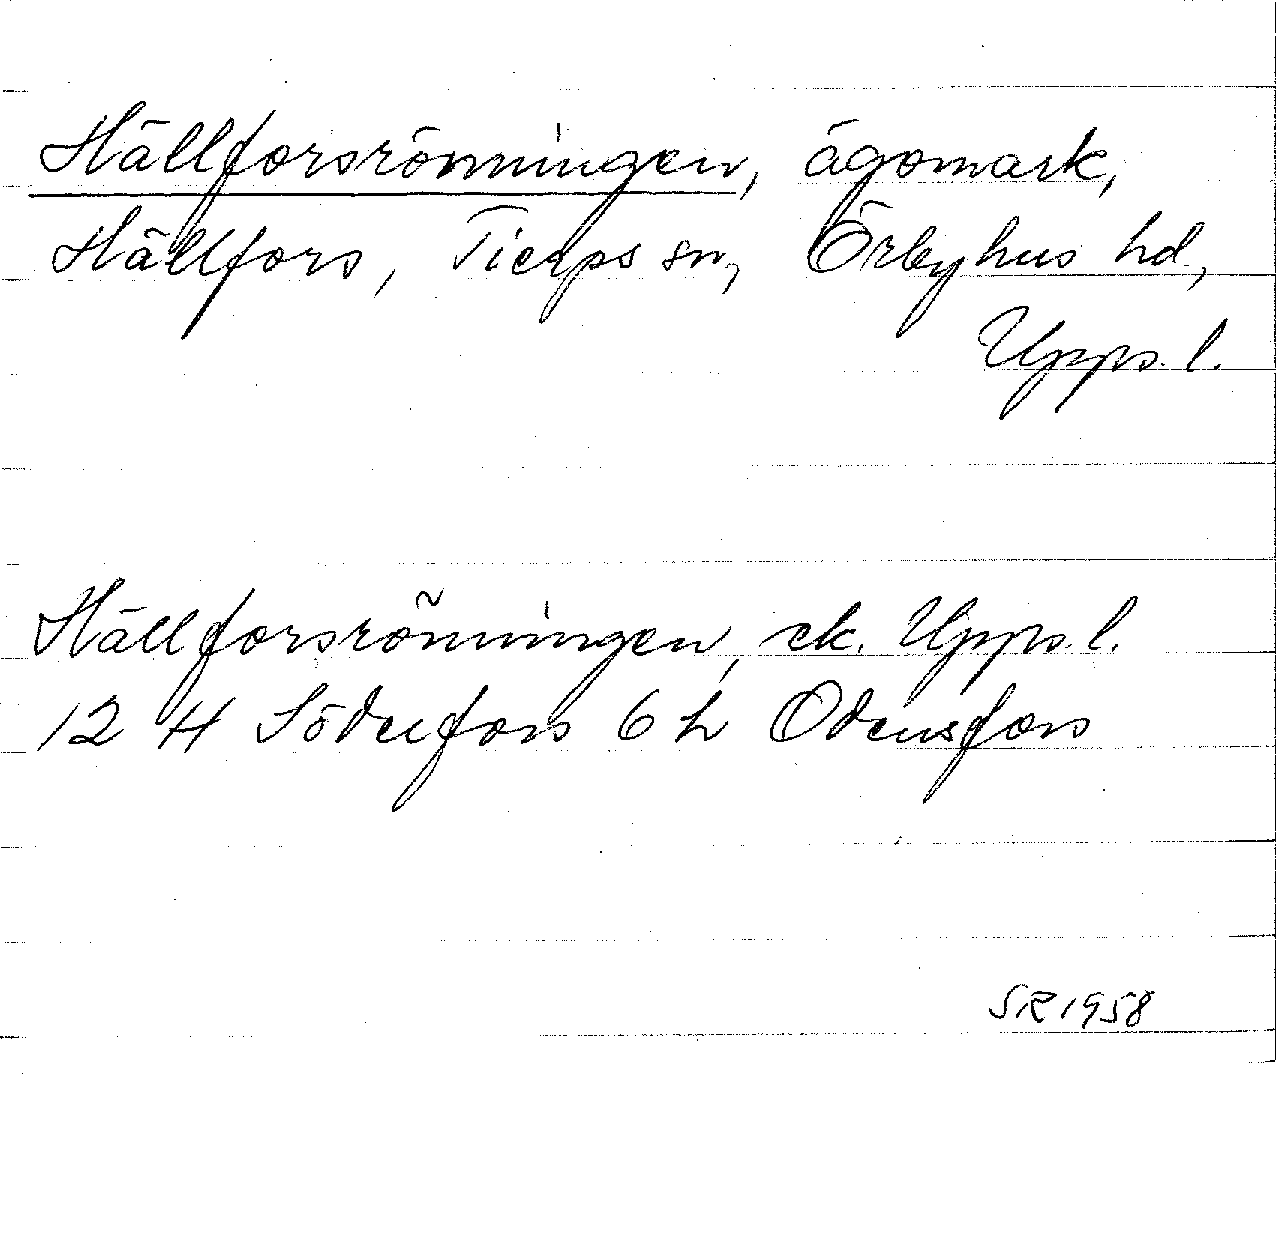 Hällforsrönningen, ägomark,
Hällfors, Tierps sn, Örbyhus hd,
Upps. l.
Hällforsrönningen, ek. Upps. l.
12 H Söderfors 6 h Odensfors
SR 1958